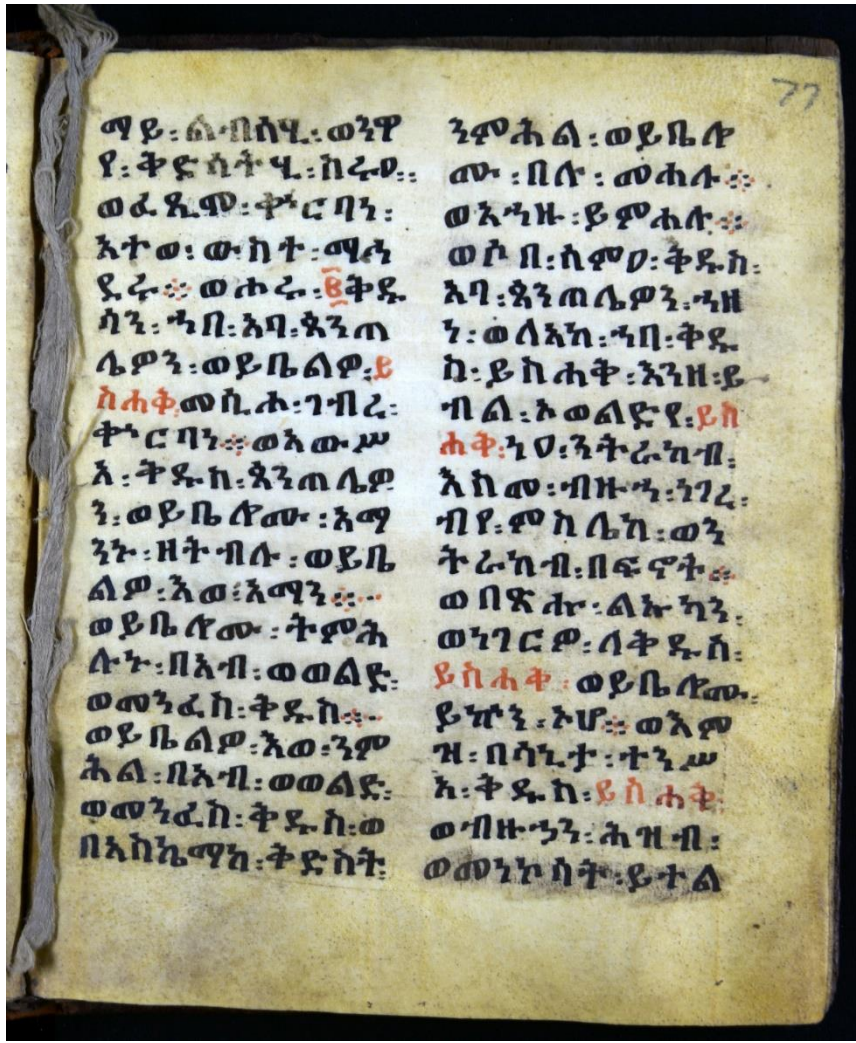 77
ማይ፡ ልብሰሂ፡ ወንዋ
የ፡ ቅድሳትሂ፡ ከሩዐ።
ወፈጺሞ፡ ቍርባነ፡
አተወ፡ ውስተ፡ ማኅ
ደሩ። ወሖሩ፡ ፪ቅዱ
ሳን፡ ኀበ፡ አባ፡ ጰንጠ
ሌዎን፡ ወይቤልዎ፡ ይ
ስሐቅ፡ መሲሖ፡ ገብረ፡
ቍርባነ። ወአውሥ
አ፡ ቅዱስ፡ ጰንጠሌዎ
ን፡ ወይቤሎሙ፡ አማ
ንኑ፡ ዘትብሉ፡ ወይቤ
ልዎ፡ እወ፡ አማን።
ወይቤሎሙ፡ ትምሕ
ሉኑ፡ በአብ፡ ወወልድ፡
ወመንፈስ፡ ቅዱስ።
ወይቤልዎ፡ እወ፡ ንም
ሕል፡ በአብ፡ ወወልድ፡
ወመንፈስ፡ ቅዱስ፡ ወ
በአስኬማከ፡ ቅድስት፡
ንምሕል፡ ወይቤሎ
ሙ፡ በሉ፡ መሐሉ።
ወአኀዙ፡ ይምሐሉ።
ወሶበ፡ ሰምዐ፡ ቅዱስ፡
አባ፡ ጰንጠሌዎን፡ ኀዘ
ነ፡ ወለአከ፡ ኀበ፡ ቅዱ
ስ፡ ይስሐቅ፡ እንዘ፡ ይ
ብል፡ ኦወልድየ፡ ይስ
ሐቅ፡ ነዐ፡ ንትራከብ፡
እስመ፡ ብዙኅ፡ ነገረ፡
ብየ፡ ምስሌከ፡ ወን
ትራከብ፡ በፍኖት።
ወበጽሑ፡ ልኡካን፡
ወነገርዎ፡ ለቅዱስ፡
ይስሐቅ፡ ወይቤሎሙ፡
ይኩን፡ ኦሆ። ወእም
ዝ፡ በሳኒታ፡ ተንሥ
አ፡ ቅዱስ፡ ይስሐቅ፡
ወብዙኃን፡ ሕዝብ፡
ወመንኮሳት፡ ይተል